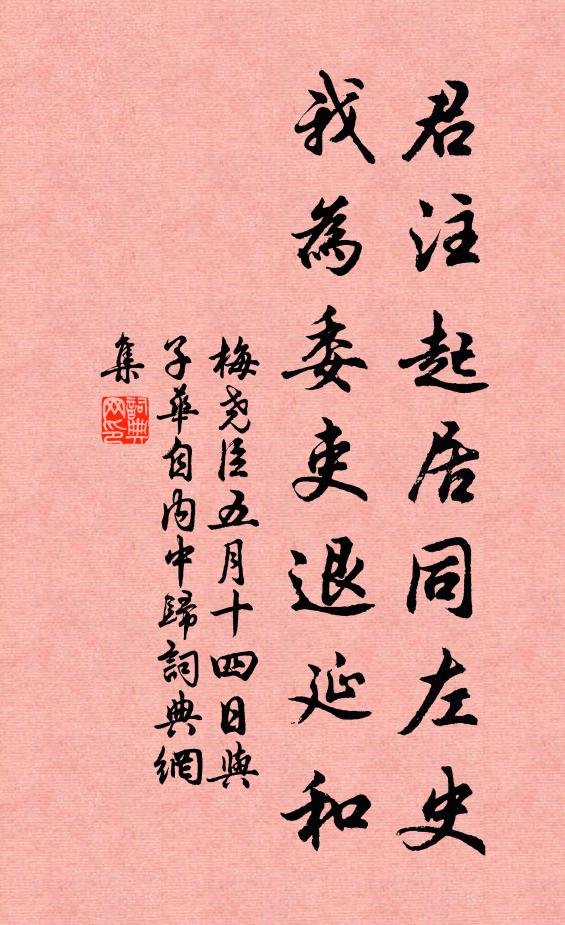 君注起居同左史
我為委吏退延和
梅尧臣五月十四日與
子華自內中歸詞典網
集
詞典网印